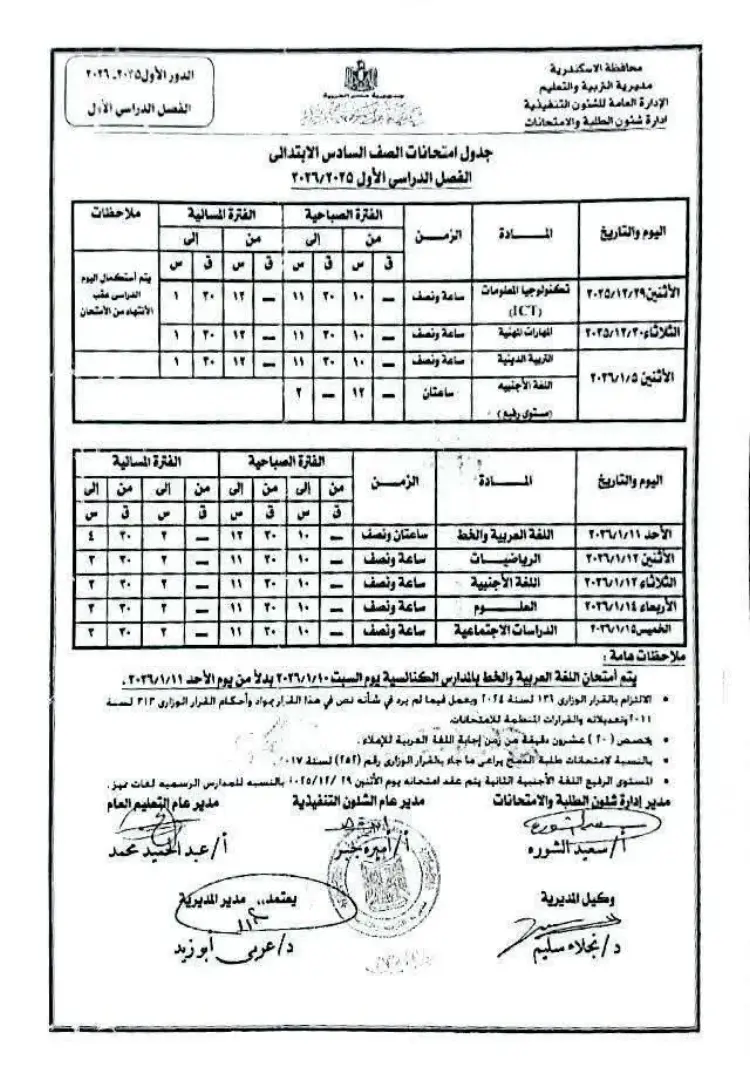 محافظة الاسكندرية
مديرية التربية والتعليم
الإدارة العامة للشئون التنفيذية
ادارة شئون الطلبة والامتحانات
جمهورية مصر العربية
الدور الأول ٢٠٢٥ـ ٢٠٢٦
الفصل الدراسي الأول
جدول امتحانات الصف السادس الابتدائى
الفصل الدراسي الأول ٢٠٢٦/٢٠٢٥
اليوم والتاريخ المــادة الزمــن الفترة الصباحية الفترة المسائية ملاحظات
من إلى من إلى
ق س ق س ق س ق س
الأثنين ٢٠٢٥/١٢/٢٩ تكنولوجيا المعلومات (ICT) ساعة ونصف — ١٠ ٣٠ ١١ — ١٢ ٣٠ ١
يتم أستكمال اليوم الدراسى عقب الأنتهاء من الأمتحان
الثلاثاء ٢٠٢٥/١٢/٣٠ المهارات المهنية ساعة ونصف — ١٠ ٣٠ ١١ — ١٢ ٣٠ ١
الأثنين ٢٠٢٦/١/٥ التربية الدينية ساعة ونصف — ١٠ ٣٠ ١١ — ١٢ ٣٠ ١
اللغة الأجنبيه (مستوى رفيع) ساعتان — ١٢ — ٢
اليوم والتاريخ المــادة الزمــن الفترة الصباحية الفترة المسائية
من إلى من إلى من إلى من إلى
ق س ق س ق س ق س
الأحد ٢٠٢٦/١/١١ اللغة العربية والخط ساعتان ونصف — ١٠ ٣٠ ١٢ — ٢ ٣٠ ٤
الأثنين ٢٠٢٦/١/١٢ الرياضيــات ساعة ونصف — ١٠ ٣٠ ١١ — ٢ ٣٠ ٣
الثلاثاء ٢٠٢٦/١/١٣ اللغة الأجنبية ساعة ونصف — ١٠ ٣٠ ١١ — ٢ ٣٠ ٣
الأربعاء ٢٠٢٦/١/١٤ العلــوم ساعة ونصف — ١٠ ٣٠ ١١ — ٢ ٣٠ ٣
الخميس ٢٠٢٦/١/١٥ الدراسات الاجتماعية ساعة ونصف — ١٠ ٣٠ ١١ — ٢ ٣٠ ٣
ملاحظات هامة :
يتم أمتحان اللغة العربية والخط بالمدارس الكنائسية يوم السبت ٢٠٢٦/١/١٠ بدلاً من يوم الأحد ٢٠٢٦/١/١١ .
• الالتزام بالقرار الوزارى ١٣٦ لسنة ٢٠٢٤ ويعمل فيما لم يرد في شأنه نص في هذا القرار بمواد وأحكام القرار الوزارى ٣١٣ لسنة
٢٠١١ وتعديلاته والقرارات المنظمة للامتحانات.
• يخصص (٢٠) عشرون دقيقة من زمن إجابة اللغة العربية للإملاء .
• بالنسبة لامتحانات طلبة الدمج يراعى ما جاء بالقرار الوزارى رقم (٢٥٢) لسنة ٢٠١٧.
• المستوى الرفيع اللغة الأجنبية الثانية يتم عقد امتحانه يوم الأثنين ٢٩ /٢٠٢٥/١٢ بالنسبه للمدارس الرسميه لغات متميز .
مدير إدارة شئون الطلبة والامتحانات مدير عام الشئون التنفيذية مدير عام التعليم العام
أ/ سعيد الشوره أ/ أميرة أ/ عبد الحميد محمد
وكيل المديرية يعتمد،، مدير المديرية
د/ نجلاء سليم د/ عربى أبو زيد